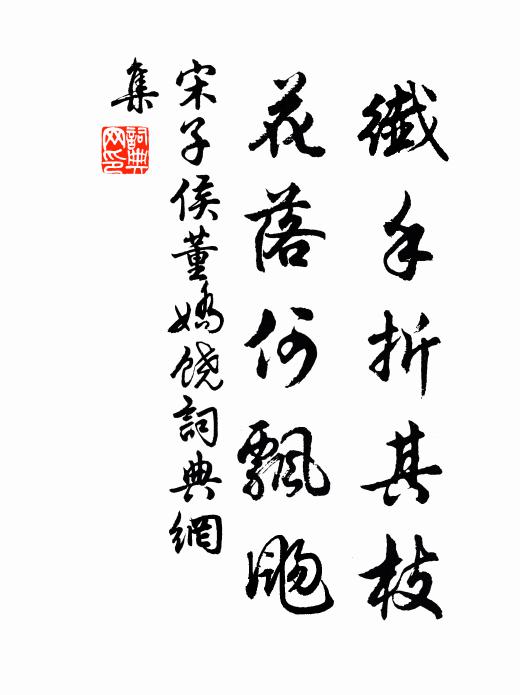 纖手折其枝
花落何飄颺
宋子侯董嬌饒詞典網
集
詞典
网印